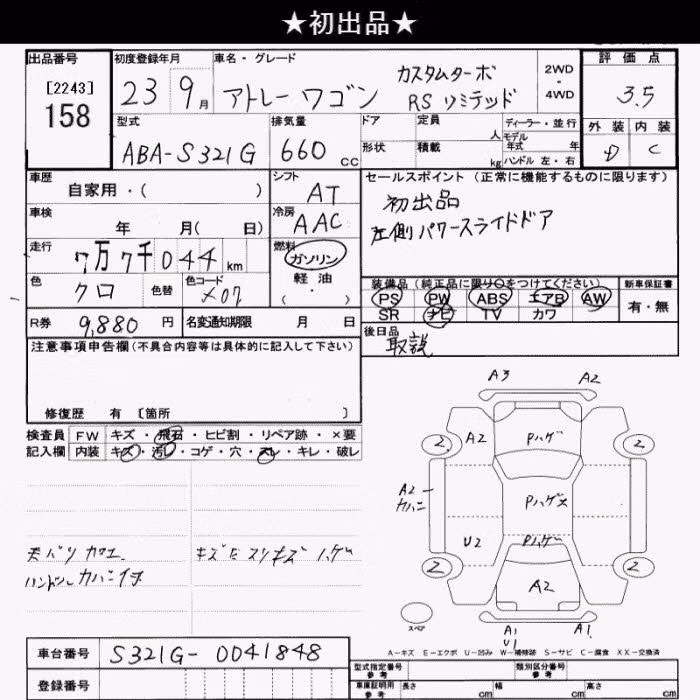 ★初出品★
出品番号
[2243]
158
初度登録年月
23 9月
車名・グレード
カスタムターボ
アトレーワゴン RSリミテッド
2WD
・
4WD
評価点
3.5
外装 内装
D C
型式
ABA-S321G
排気量
660 cc
ドア
形状
定員
人
積載
kg
ディーラー・並行
モデル
年式 年
ハンドル 左・右
車歴
自家用・( )
シフト
AT
セールスポイント(正常に機能するものに限ります)
初出品
左側パワースライドドア
車検
年 月( 日)
冷房
AAC
走行
7万7千044km
燃料
ガソリン
軽油
( ・ )
色
クロ
色替
色コード
X07
装備品(純正品に限り○をつけてください)
PS PW ABS エアB AW
SR ナビ TV カワ
新車保証書
有・無
R券
9,880円
名変通知期限 月 日
後日品
取説
注意事項申告欄(不具合内容等は具体的に記入して下さい)
修復歴 有 [箇所 ]
検査員
記入欄
FW キズ・飛石・ヒビ割・リペア跡・×要
内装 キズ・汚レ・コゲ・穴・スレ・キレ・破レ
天バリ
キズ スリキズ ハゲ
A3 A2
2 A2 Pハゲ 2
A2
Pハゲ
U2 Pハゲ
2 A2 2
スペア
A1 A1
U1
A-キズ E-エクボ U-凹み W-補修跡 S-サビ C-腐食 XX-交換済
車台番号
S321G-0041848
登録番号
型式指定番号
参考
類別区分番号
参考
車庫証明用
参考
長さ cm
幅 cm
高さ cm